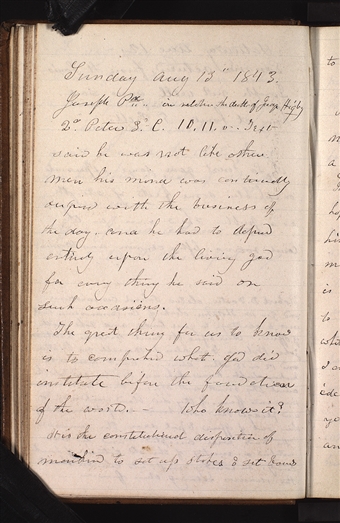 Sunday Aug 13th 1843.
Joseph Pt. in relation the death of Judge Higby
2d Peter 3. C. 10. 11. v - Text
said he was not like other
men his mind was continually
occupied with the business of
the day. and he had to depend
entirely upon the living god
for every thing he said on
such occasions.
The great thing for us to know
is to comprehend what god did
institute before the foundation
of the world. - Who knows it?
it is the constitutional disposition of
mankind to set up stakes & set bounds